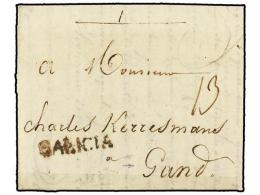 1
a Monsieur
13
Charles Kerresmans
GALICIA
a
Gand.